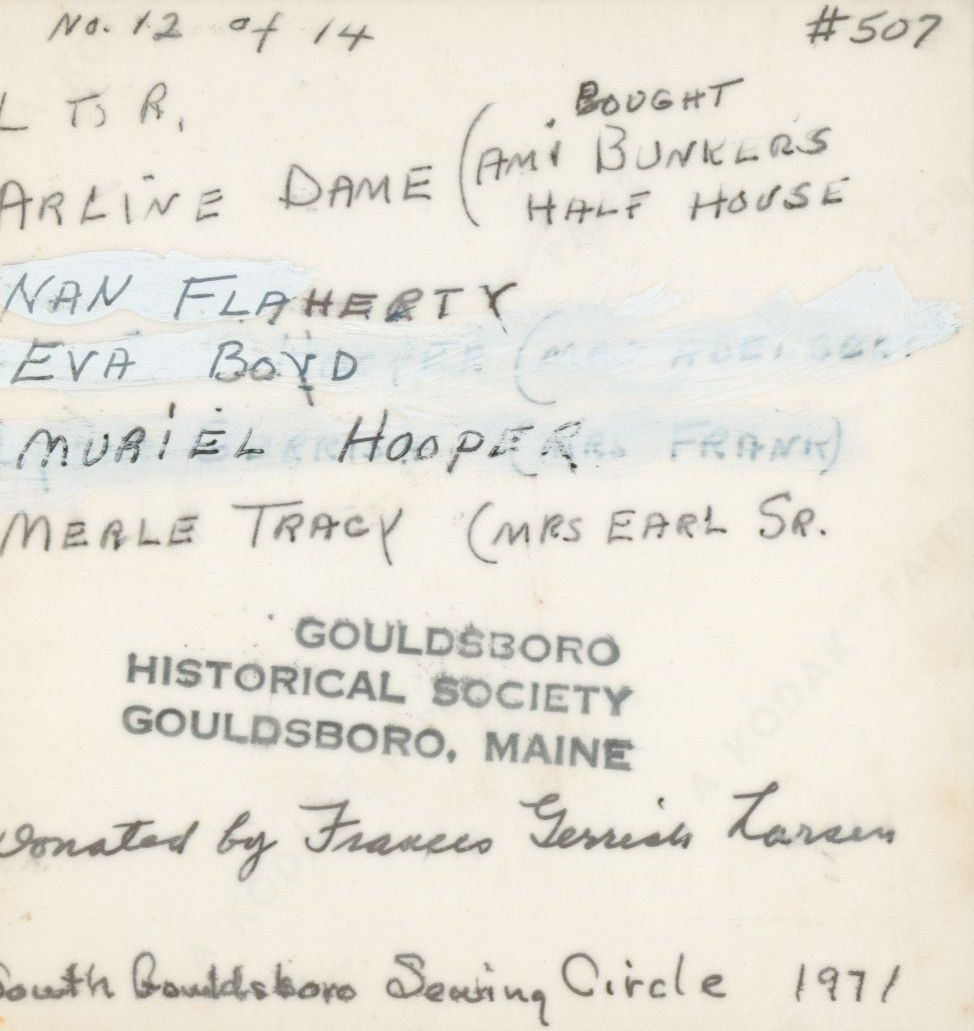 No. 12 of 14 #507
L TO R.
ARLINE DAME (BOUGHT
AMI BUNKERS
HALF HOUSE
NAN FLAHERTY
EVA BOYD HOOPER (MRS
MURIEL HOOPER (MRS FRANK)
MERLE TRACY (MRS EARL SR.
GOULDSBORO
HISTORICAL SOCIETY
GOULDSBORO, MAINE
Donated by Frances Gerrish Larsen
South Gouldsboro Sewing Circle 1971